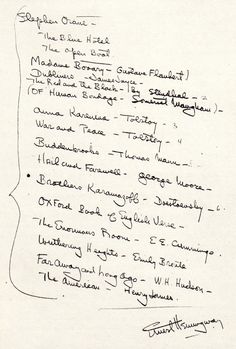 Stephen Crane -
The Blue Hotel
The Open Boat
Madame Bovary - Gustave Flaubert
Dubliners - James Joyce -
The Red and the Black - by Stendhal -
(Of Human Bondage - Somerset Maugham) -
Anna Karenina - Tolstoy -
War and Peace - Tolstoy -
Buddenbrooks - Thomas Mann -
Hail and Farewell - George Moore -
Brothers Karamazoff - Dostoevsky -
Oxford Book of English Verse -
The Enormous Room - E.E. Cummings.
Wuthering Heights - Emily Bronte
Far Away and Long Ago - W.H. Hudson -
The American - Henry James.
Ernest Hemingway